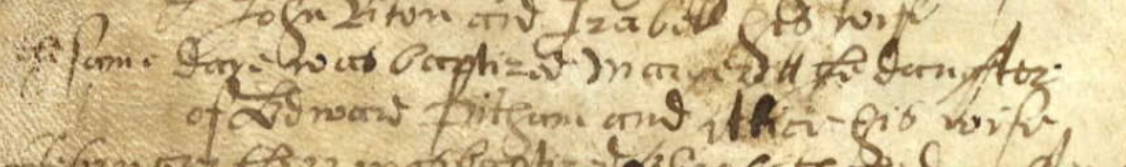 John Riton and Izabell his wife
the same daye was baptized Margerett the daughter
of Edward Pitham and Allice his wife